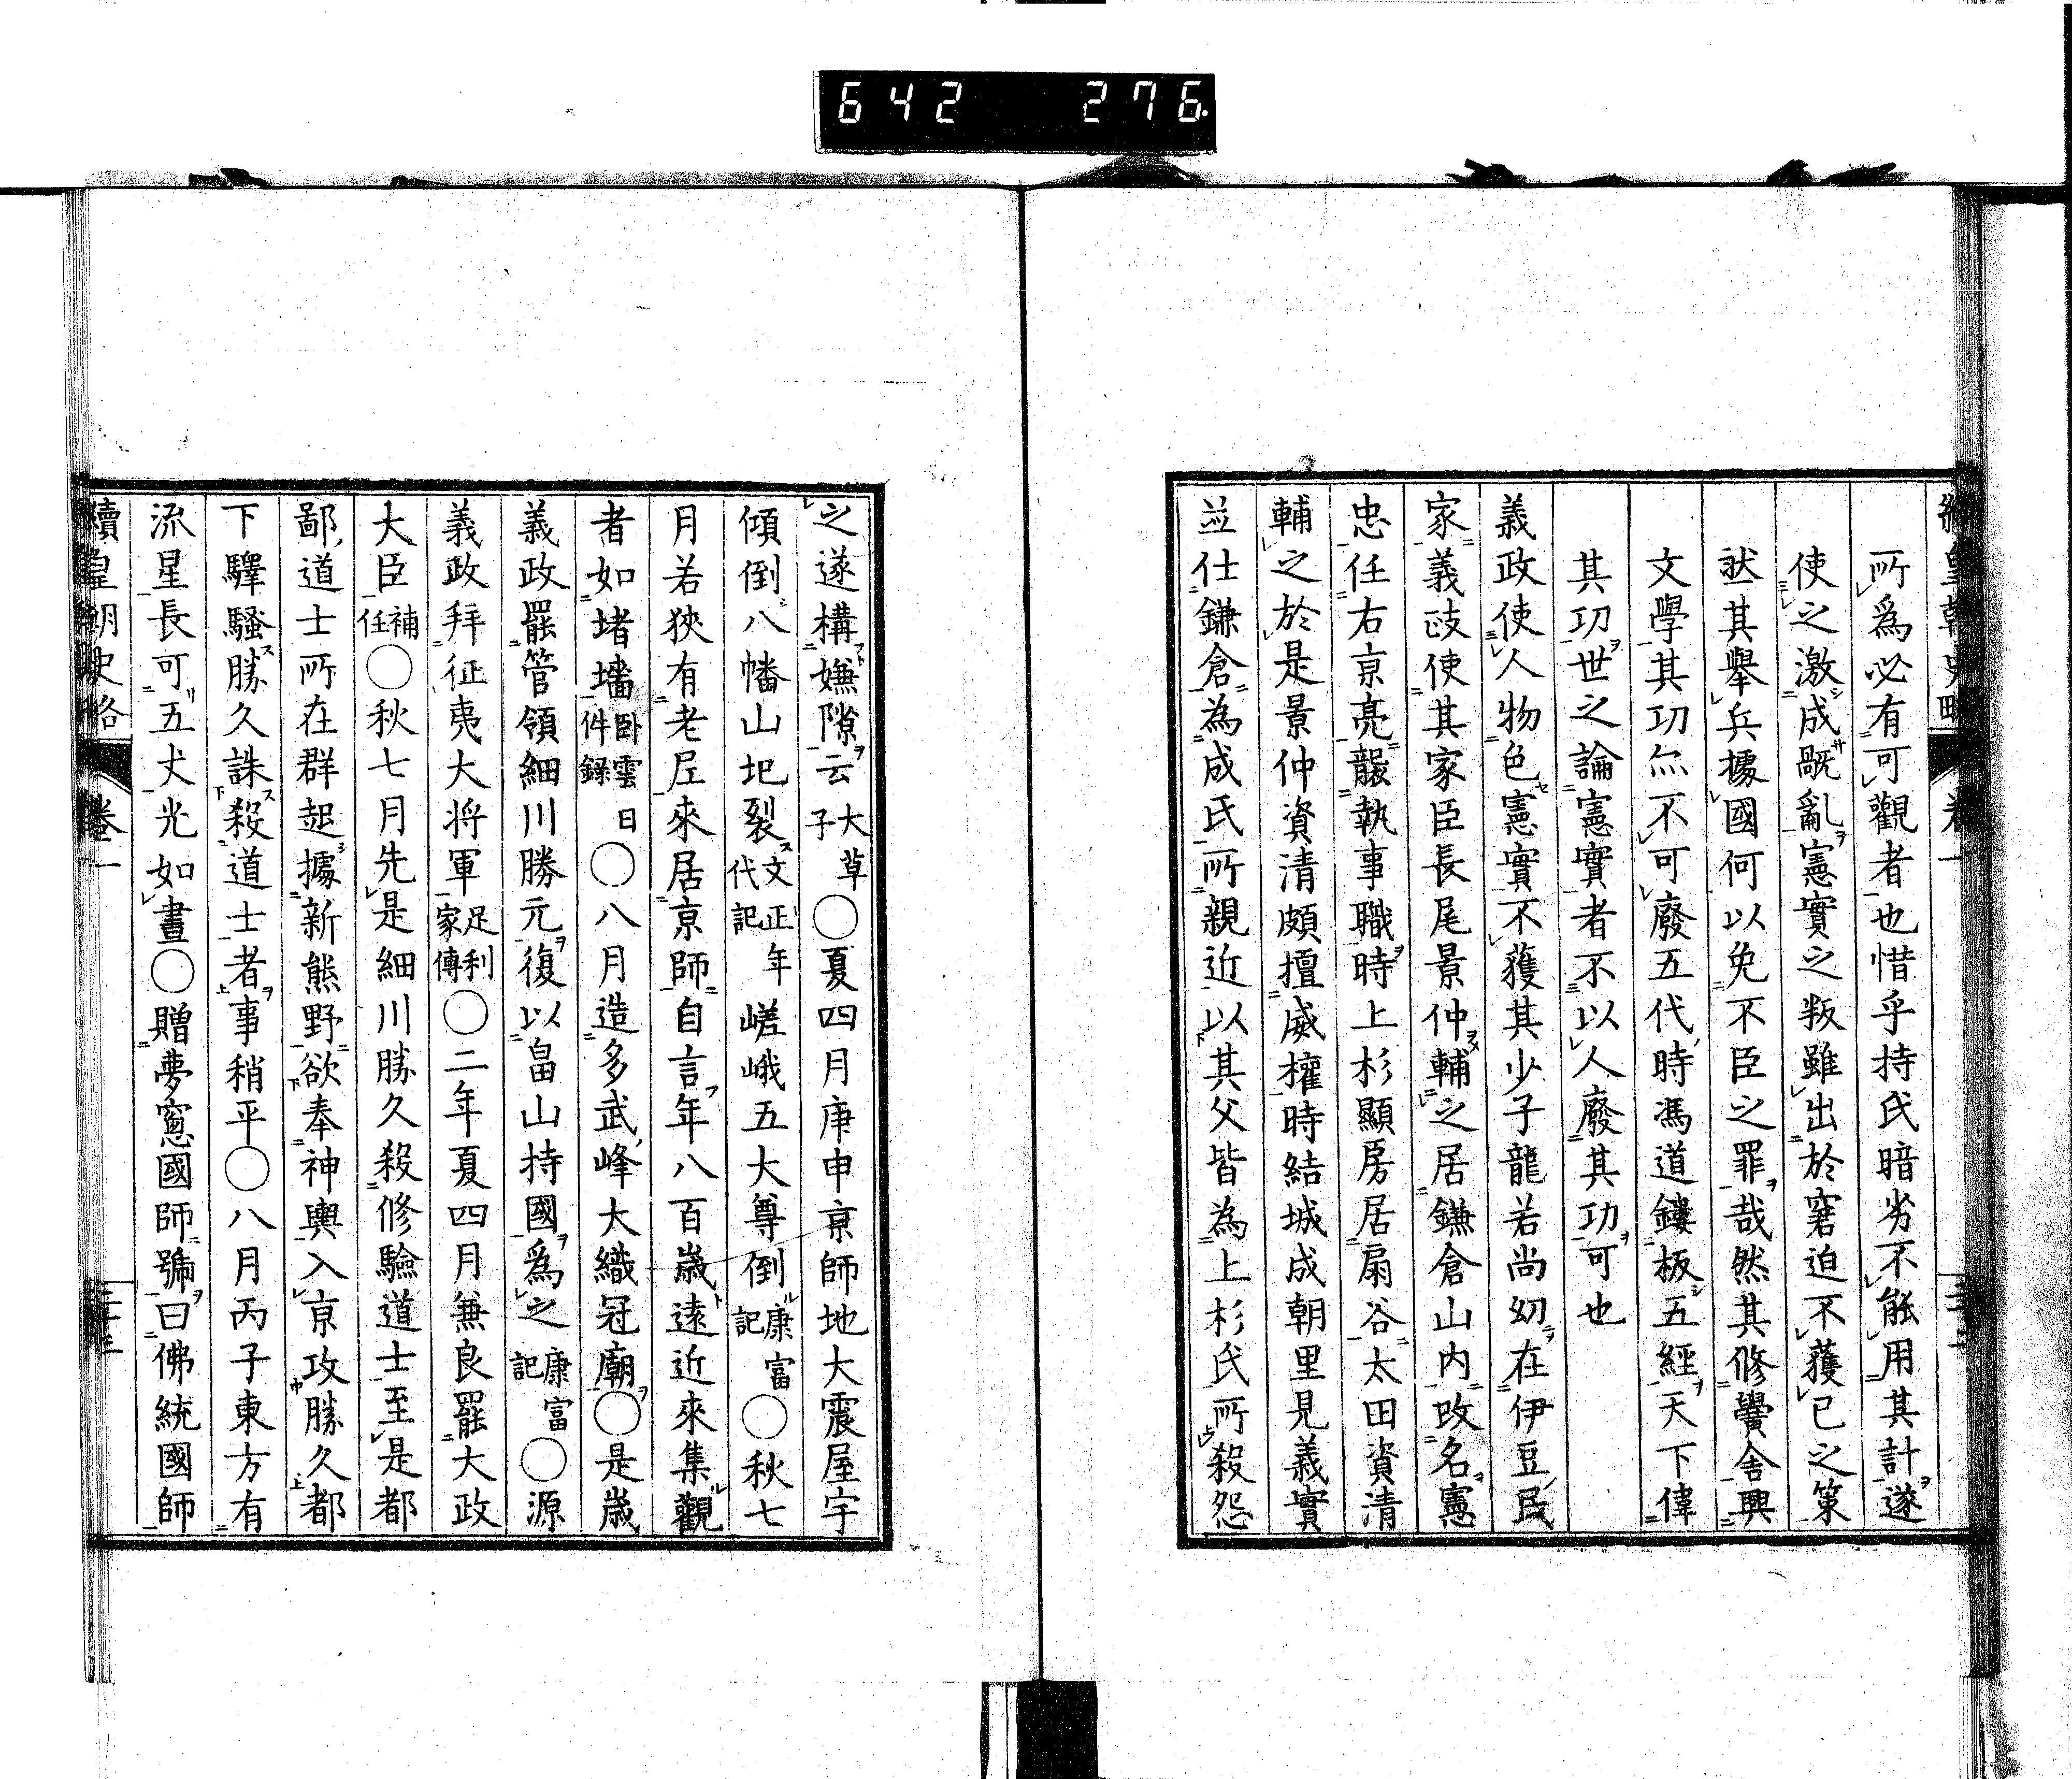 642 276
續皇朝史略 卷一
所爲必有可觀者也惜乎持氏暗劣不能用其計遂
使之激成厩亂憲實之叛雖出於窘迫不獲已之策
然其擧兵據國何以免不臣之罪哉然其修黌舍興
文學其功亦不可廢五代時馮道鏤板五經天下偉
其功世之論憲實者不以人廢其功可也
義政使人物色憲實不獲其少子龍若尚幼在伊豆民
家義政使其家臣長尾景仲輔之居鎌倉山内改名憲
忠任右京亮襲執事職時上杉顯房居扇谷太田資清
輔之於是景仲資清頗擅威權時結城成朝里見義實
並仕鎌倉為成氏所親近以其父皆為上杉氏所殺怨
之遂構嫌隙云大草子〇夏四月庚申京師地大震屋宇
傾倒八幡山圯裂文正年代記嵯峨五大尊倒康富記〇秋七
月若狹有老尼來居京師自言年八百歳遠近來集觀
者如堵墻臥雲日件録〇八月造多武峰大織冠廟〇是歳
義政罷管領細川勝元復以畠山持國爲之康富記〇源
義政拜征夷大将軍足利家傳〇二年夏四月兼良罷大政
大臣補任〇秋七月先是細川勝久殺修驗道士至是都
鄙道士所在群起據新熊野欲奉神輿入京攻勝久都
下驛騷勝久誅殺道士者事稍平〇八月丙子東方有
流星長可五丈光如晝〇贈夢窻國師號曰佛統國師
續皇朝史略 卷一 二十三